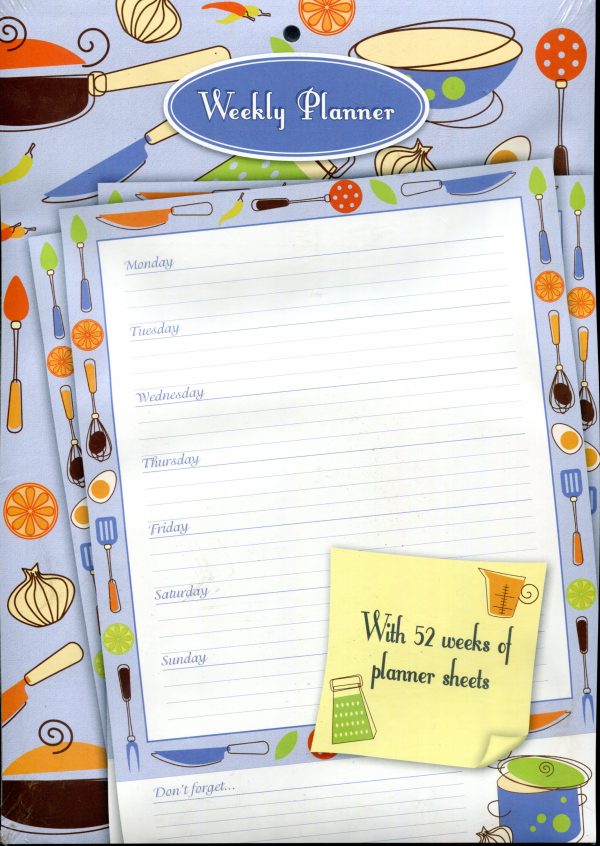 Weekly Planner
Monday
Tuesday
Wednesday
Thursday
Friday
Saturday
Sunday
With 52 weeks of
planner sheets
Don't forget...